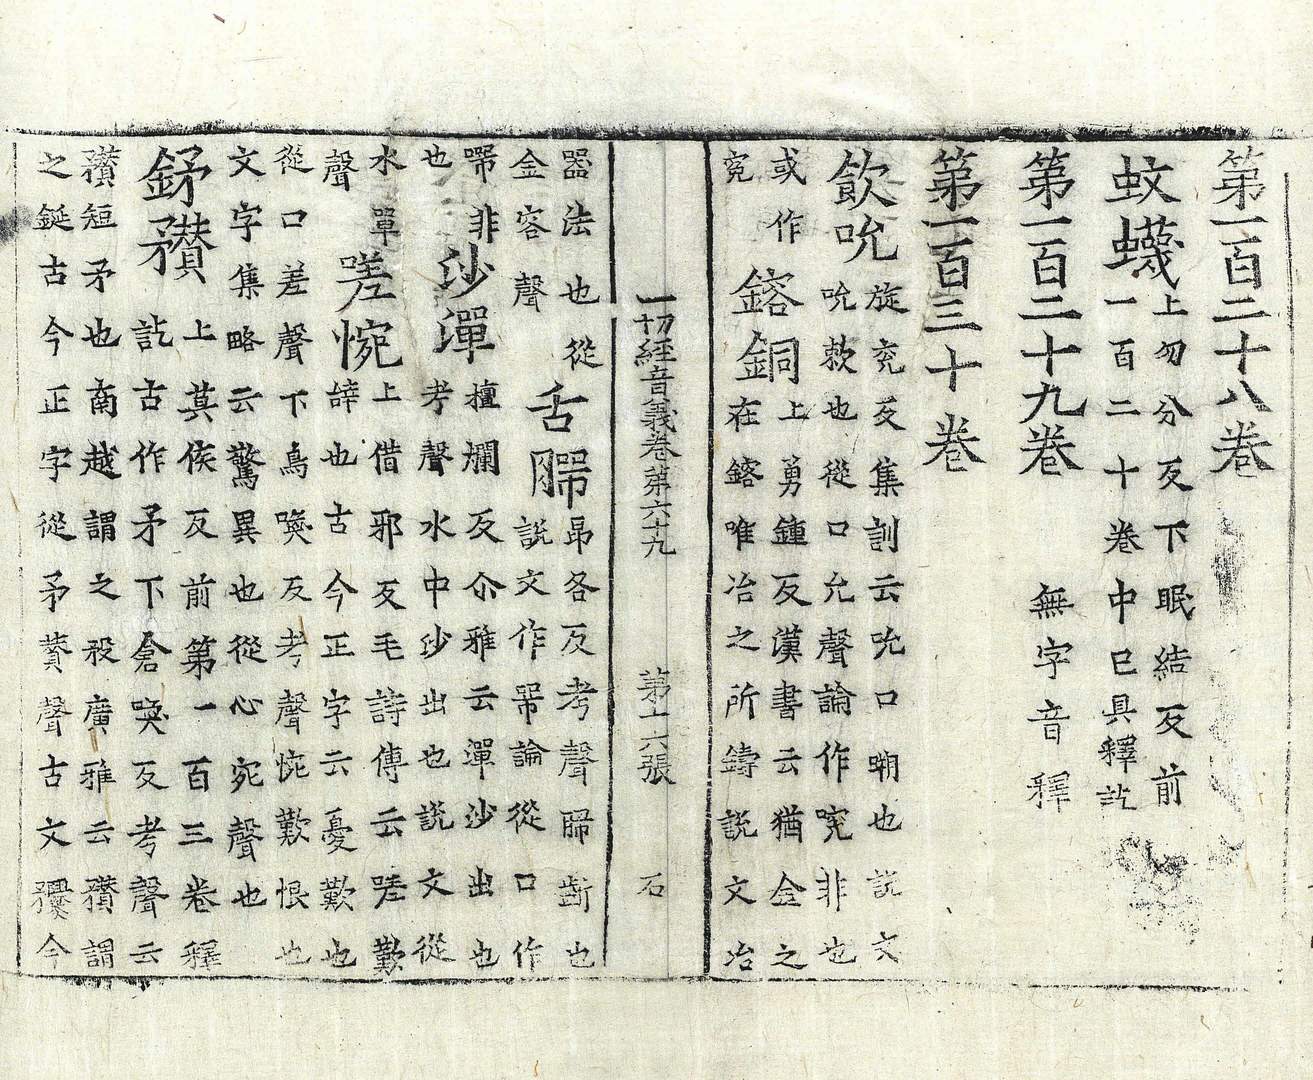 第一百二十八卷
蚊蠛上勿分反下眠結反前
一百二十卷中已具釋訖
第一百二十九卷 無字音釋
第一百三十卷
飲吮旋兖反集訓云吮口㗘也説文
吮欶也從口允聲論作㖽非也
或作 鎔銅上勇鍾反漢書云猶金之
在鎔唯冶之所鑄説文冶
器法也從
金容聲 舌腭昂各反考聲腭齗也
説文作㖾論從口作
㗁非 沙潬檀爛反尒雅云潬沙出也
也 考聲水中沙出也説文從
水單
聲 嗟惋上借邪反毛詩傳云嗟歎
辝也古今正字云憂歎也
從口差聲下烏喚反考聲惋歎恨也
文字集略云驚異也從心宛聲也
鉾矟上莫侯反前第一百三卷釋
訖古作矛下倉喚反考聲云
穳短矛也南越謂之䂎廣雅云穳謂
之鋋古今正字從矛贊聲古文𥎝今
一切經音義卷第六十九 第十六張 石